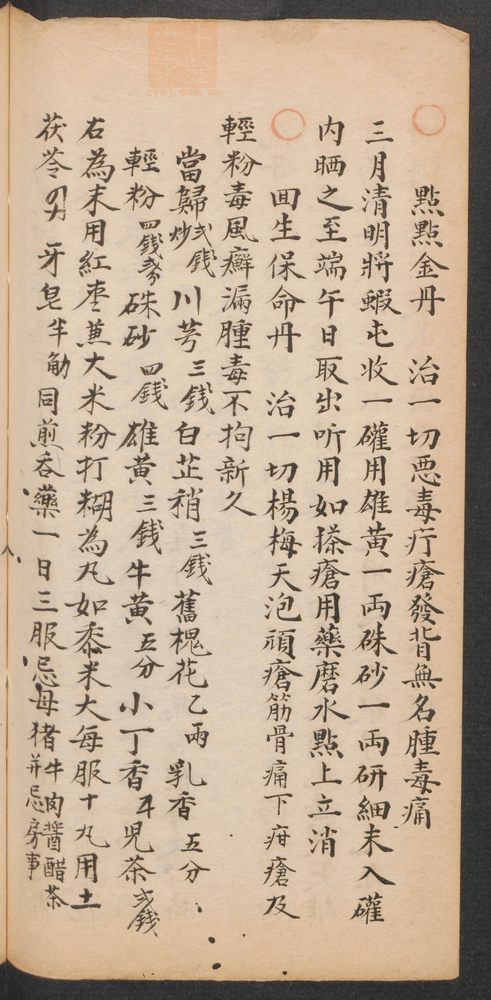 點點金丹　治一切悪毒疔瘡發背無名腫毒痛
三月清明將蝦屯收一礶用雄黄一両硃砂一両研細末入礶
内晒之至端午日取出听用如搽瘡用藥磨水點上立消
囬生保命丹　治一切楊梅天泡頑瘡筋骨痛下疳瘡及
輕粉毒風癬漏腫毒不拘新久
當歸 弍錢炒 川芎 三錢 白芷稍 三錢 舊槐花 乙両 乳香 五分
輕粉 四錢 硃砂 四錢 雄黄 三錢 牛黄 五分 小丁香 兒茶 弍錢
右為末用紅枣煎大米粉打糊為丸如黍米大每服十丸用土
茯苓 牙皂 同煎吞藥一日三服忌母猪牛肉醬醋茶并忌房事